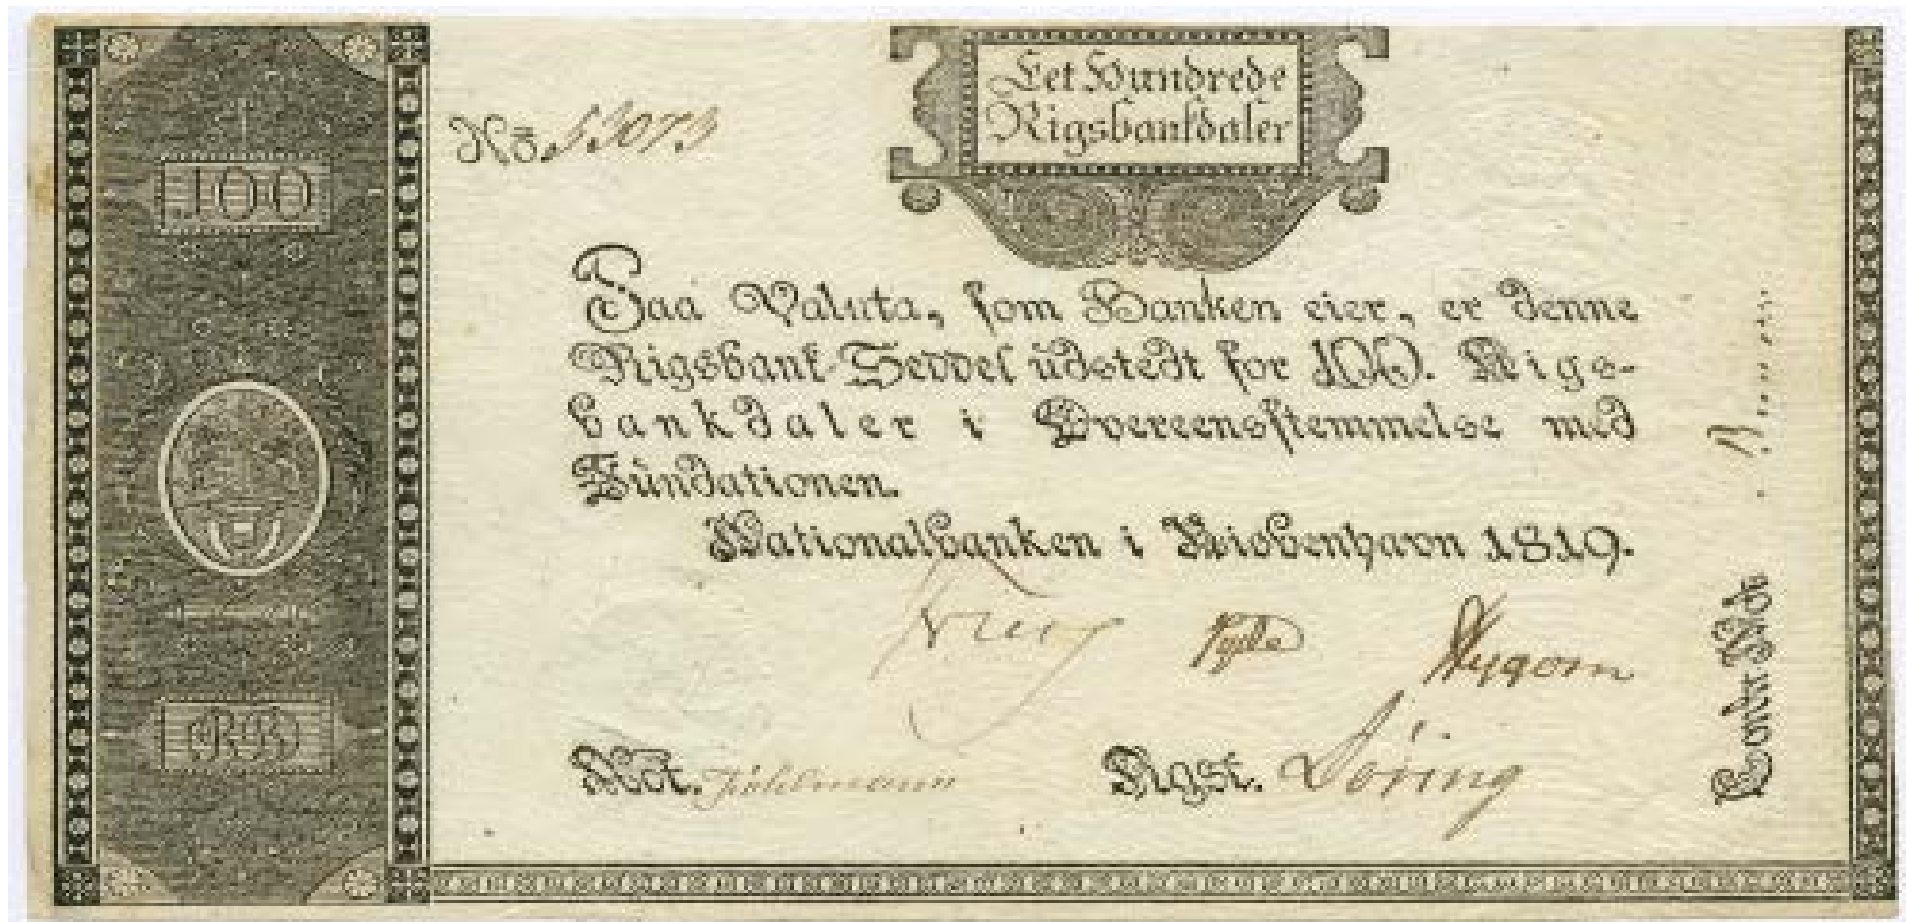 Eet Hundrede
Rigsbankdaler
No 53073
100
Paa Valuta, som Banken eier, er denne
Rigsbank-Seddel udstedt for 100. Rigs-
bankdaler i Overeensstemmelse med
Fundationen.
Nationalbanken i Kiøbenhavn 1819.
Not.
Rgst. Döring
RB